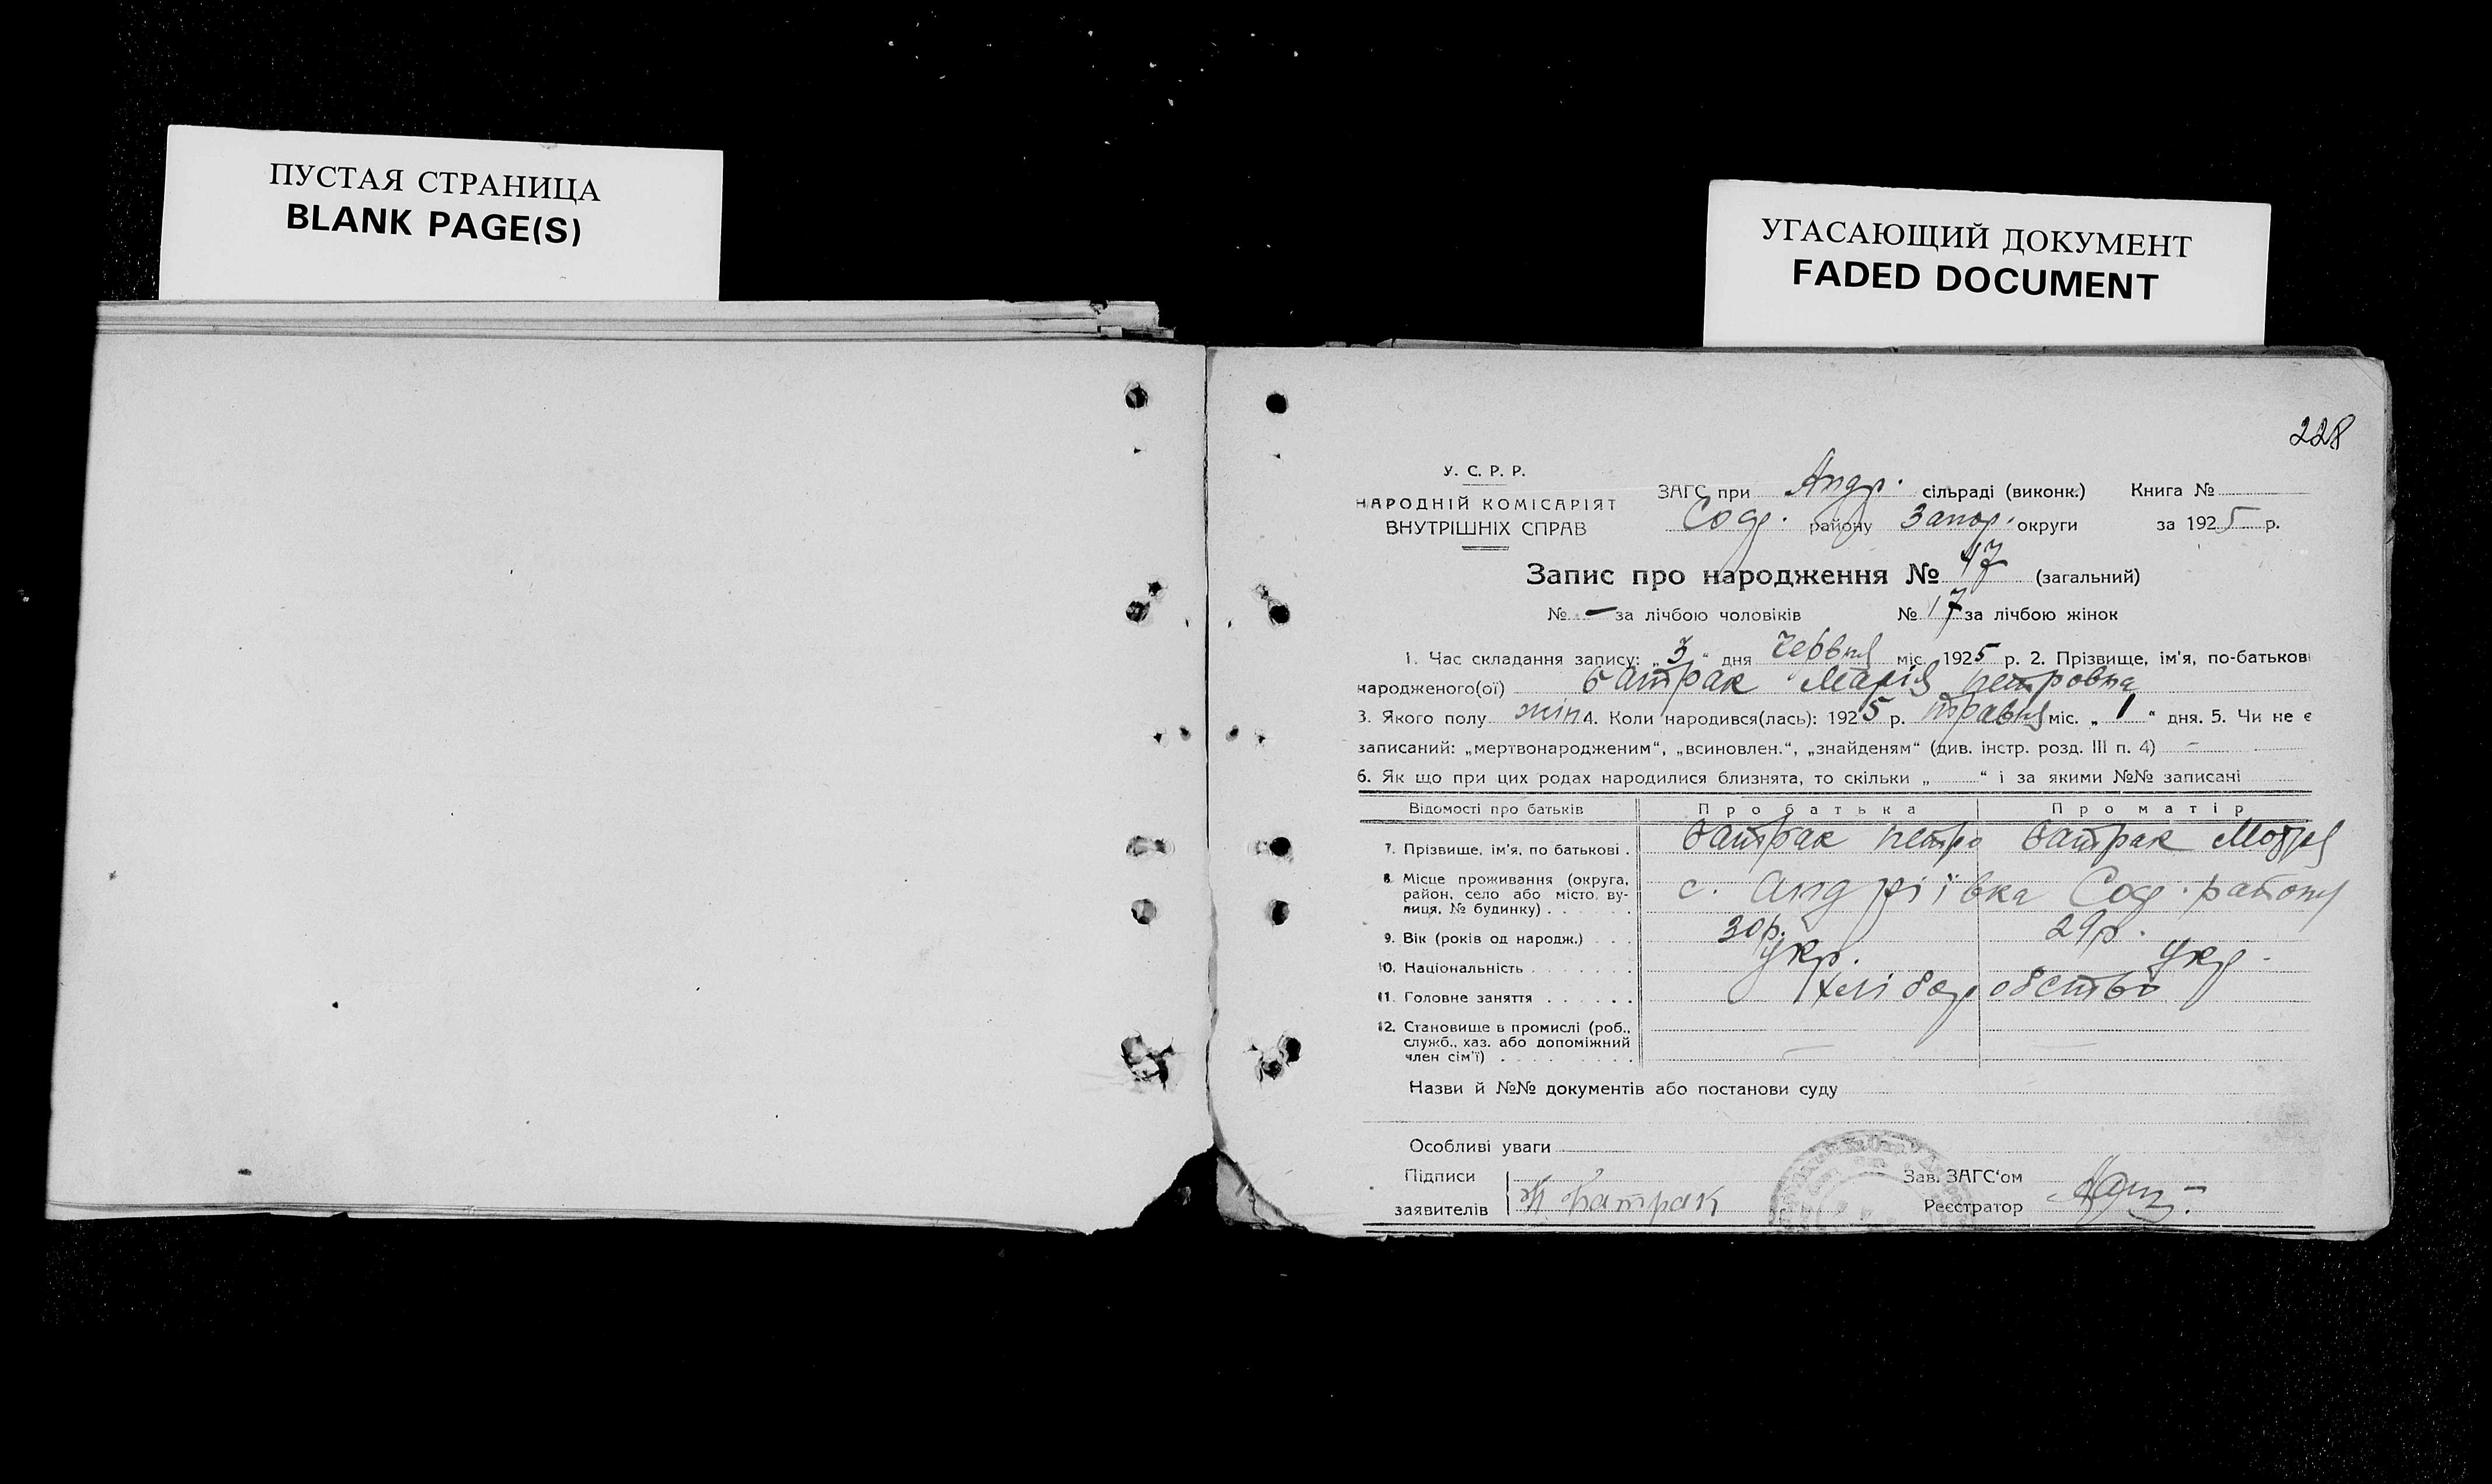 ПУСТАЯ СТРАНИЦА
BLANK PAGE(S)
УГАСАЮЩИЙ ДОКУМЕНТ
FADED DOCUMENT
228
У. С. Р. Р.
НАРОДНІЙ КОМІСАРІЯТ
ВНУТРІШНІХ СПРАВ
ЗАГС при Андр. сільраді (виконк.) Книга №
Соф. району Запор. округи за 1925 р.
Запис про народження № 47 (загальний)
№ - за лічбою чоловіків № 17 за лічбою жінок
1. Час складання запису: „3“ дня червня міс. 1925 р. 2. Прізвище, ім'я, по-батькові
народженого(ої) Батрак Марія Петровна
3. Якого полу жін 4. Коли народився(лась): 1925 р. травня міс. „1“ дня. 5. Чи не є
записаний: „мертвонародженим“, „всиновлен.“, „знайденям“ (див. інстр. розд. III п. 4) -
6. Як що при цих родах народилися близнята, то скільки „ “ і за якими №№ записані
Відомості про батьків Про батька Про матір
7. Прізвище, ім'я, по батькові . Батрак Петро Батрак
8. Місце проживання (округа, район, село або місто, вулиця, № будинку) . с. Андріївка Соф. району
9. Вік (років од народж.) 30р. 29р.
10. Національність Укр. Укр.
11. Головне заняття хліборобство
12. Становище в промислі (роб., служб., хаз. або допоміжний член сім'ї) — —
Назви й №№ документів або постанови суду
Особливі уваги
Підписи
заявителів П Батрак
Зав. ЗАГС‘ом
Реєстратор